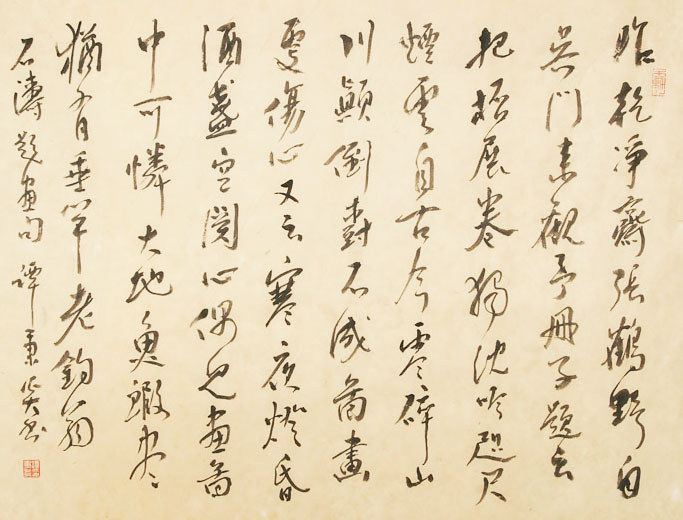 臨乾淨齋張鶴野自
吳門來觀予冊子題云
把杯展卷獨沈吟咫尺
煙雲自古今零碎山
川顛倒樹不成圖畫
更傷心又云寒夜燈昏
酒盞空關心偶見畫圖
中可憐大地魚蝦盡
猶有垂竿老釣翁
石濤題畫句 譚秉炎書